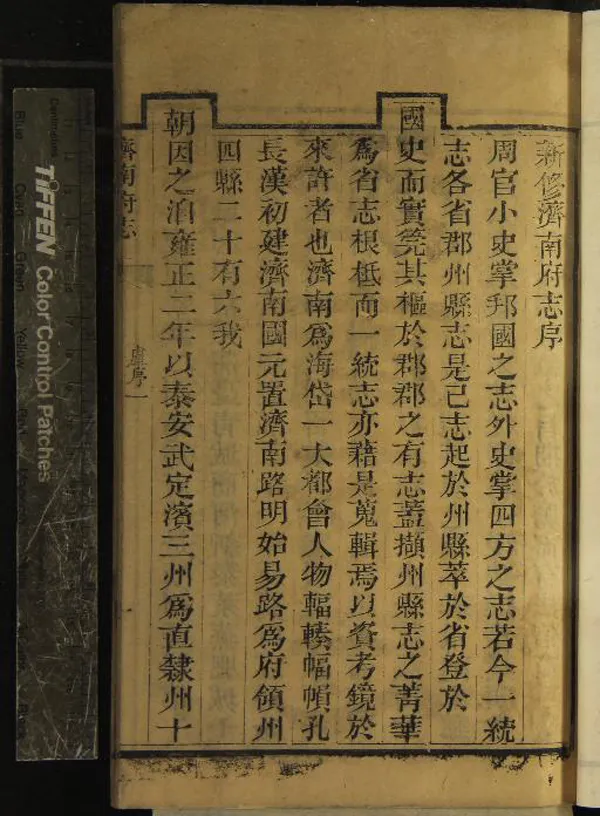 新修濟南府志序
周官小史掌邦國之志外史掌四方之志若今一統
志各省郡州縣志是已志起於州縣萃於省登於
國史而實筦其樞於郡郡之有志蓋擷州縣志之菁華
爲省志根柢而一統志亦藉是蒐輯焉以資考鏡於
來許者也濟南爲海岱一大都會人物輻輳幅幀孔
長漢初建濟南國元置濟南路明始易路爲府領州
四縣二十有六我
朝因之洎雍正二年以泰安武定濱三州爲直隸州十
濟南府志
盧序一
TIFFEN Color Control Patches
Centimetres
Blue
Cyan
Green
Yellow